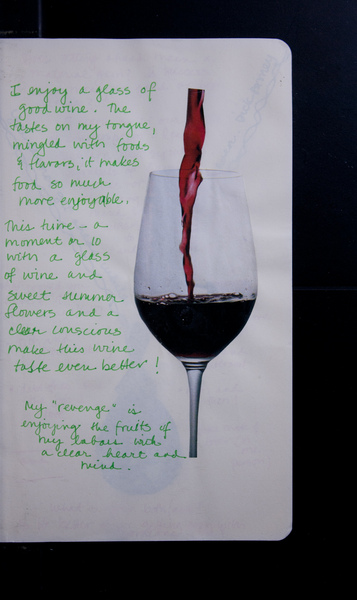 I enjoy a glass of
good wine. The
tastes on my tongue,
mingled with foods
& flavors, it makes
food so much
more enjoyable.
This time - a
moment or 10
with a glass
of wine and
sweet summer
flowers and a
clear conscious
make this wine
taste even better!
My "revenge" is
enjoying the fruits of
my labors with
a clear heart and
mind.